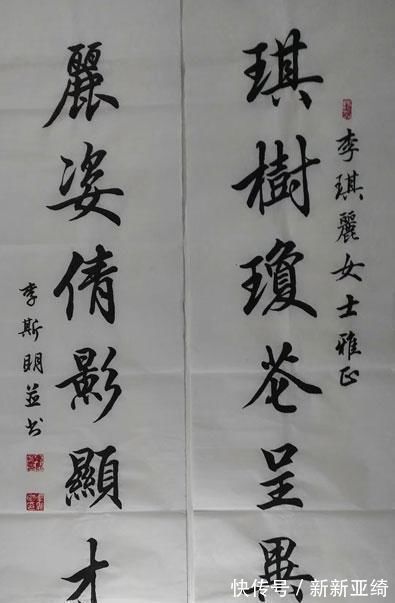 李琪麗女士雅正
琪樹瓊花呈異
麗姿倩影顯才
李斯明並书
快传号／新新亚绮